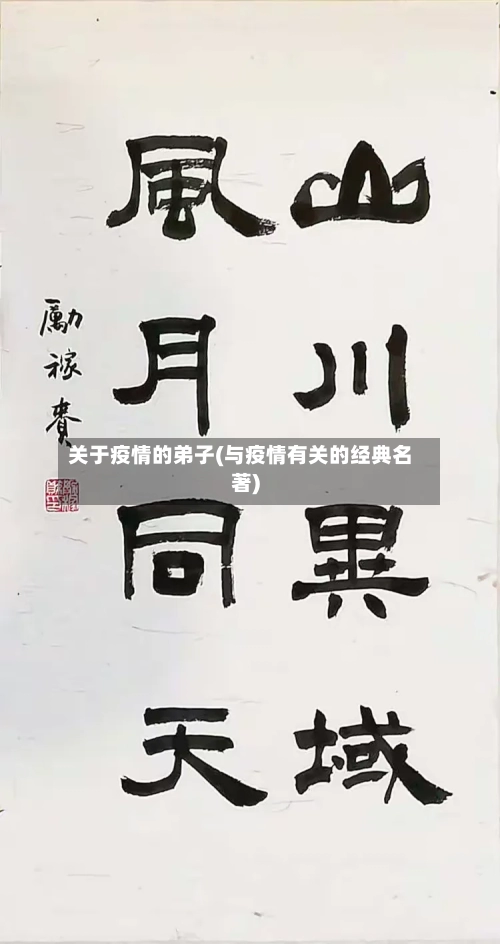 山川異域
風月同天
勵稼賚
关于疫情的弟子(与疫情有关的经典名
著)